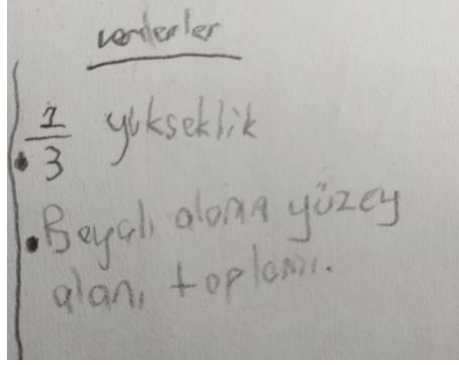 verilenler
• 1/3 yükseklik
• Boyalı alanın yüzey
alanı toplamı.